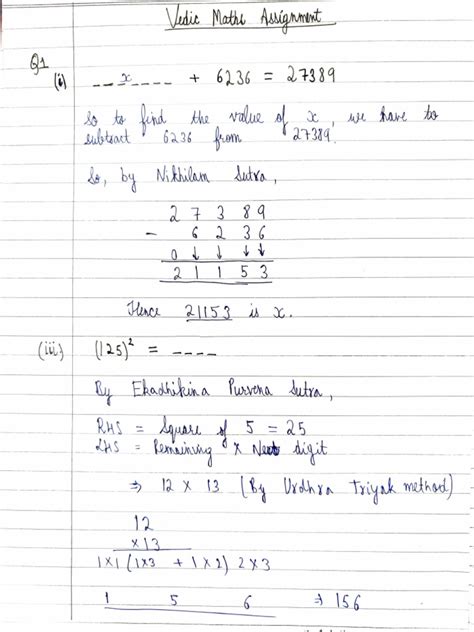 Vedic Maths Assignment
Q1
(i) _ _ x _ _ _ _ + 6236 = 27389
So to find the value of x, we have to
subtract 6236 from 27389.
So, by Nikhilam Sutra,
2 7 3 8 9
- 6 2 3 6
0 ↓ ↓ ↓ ↓
2 1 1 5 3
Hence 21153 is x.
(iii) (125)² = _ _ _ _
By Ekadhikina Purvena Sutra,
RHS = Square of 5 = 25
LHS = Remaining × Next digit
⇒ 12 × 13 (By Urdhra Triyak method)
12
×13
1×1 (1×3 + 1×2) 2×3
1 5 6 ⇒ 156